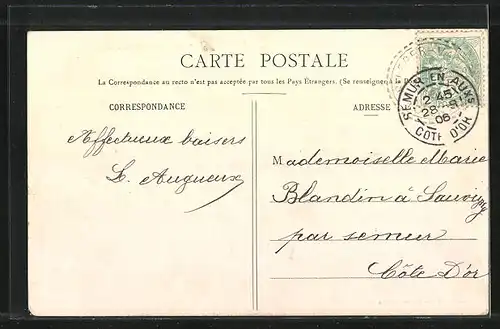 CARTE POSTALE
La Correspondance au recto n'est pas acceptée par tous les Pays Étrangers. (Se renseigner à la
CORRESPONDANCE
ADRESSE
SEMUR-EN-AUXS
2 45
06
COTE D'OR
Affectueux baisers
L. Augueux
Mademoiselle Marie
Blandin à Sauvigny
par semur
Côte D'or